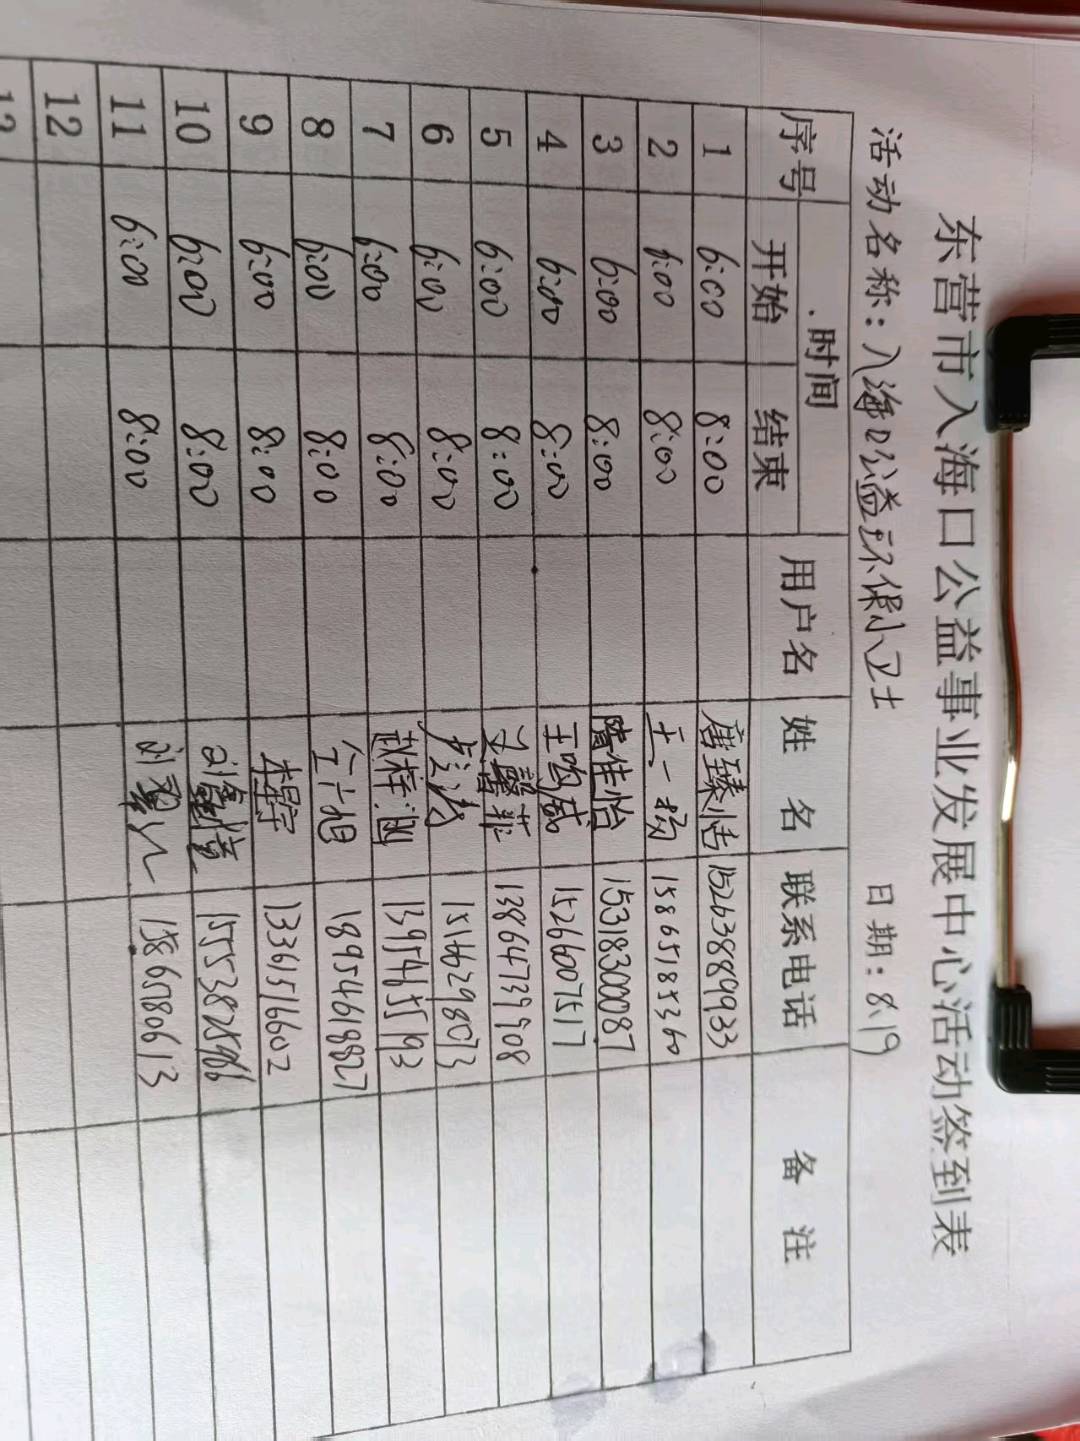 东营市入海口公益事业发展中心活动签到表
活动名称：入海口公益环保小卫士 日期：8.19
序号 时间 用户名 姓名 联系电话 备注
开始 结束
1 6:00 8:00 唐臻恬 15263889933
2 6:00 8:00 王一 15865185360
3 6:00 8:00 隋佳怡 15318300087
4 6:00 8:00 15266007517
5 6:00 8:00 13864739908
6 6:00 8:00 15146298073
7 6:00 8:00 赵梓 13954655193
8 6:00 8:00 18954619827
9 6:00 8:00 13361516602
10 6:00 8:00 刘 15553825966
11 6:00 8:00 刘 15865180613
12